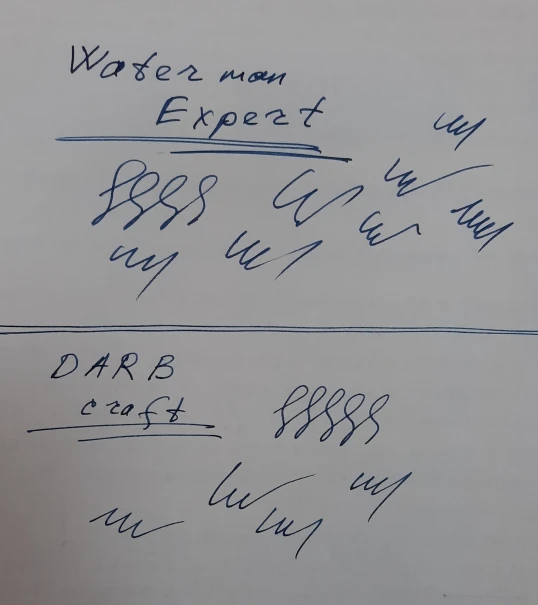 Waterman
Expert
DARB
craft